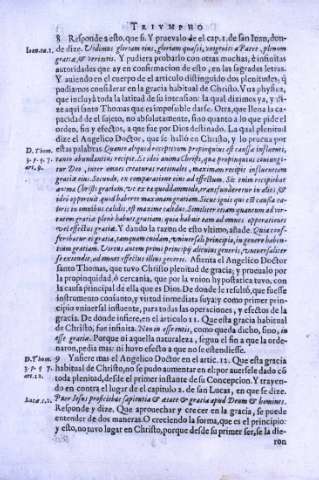 TRIVMPHO
8 Responde a esto, que si. Y pruevalo de el cap. 1. de san Iuan, don-
Ioan. ca. 1. de dize. Vidimus gloriam eius, gloriam quasi, vnigeniti a Patre, plenum
gratiæ, & veritatis. Y pudiera probarlo con otras muchas, è infinitas
autoridades que ay en confirmacion de esto, en las sagradas letras.
Y auiendo en el cuerpo de el articulo distinguido dos plenitudes, q̃
podiamos considerar en la gracia habitual de Christo. Vna physica,
que incluyá toda la latitud de su intension: la qual diximos ya, y di-
ze aqui santo Thomas que es impossible darse. Otra, que llena la ca-
pacidad de el sujeto, no absolutamente, sino quanto a lo que pide el
orden, fin y efectos, a que fue por Dios destinado. La qual plenitud
dize el Angelico Doctor, que se halló en Christo, y lo prueua por
D. Thom. estas palabras Quanto aliquid receptiuum propinquius est causæ influenti,
3. p. q. 7. tanto abundantius recipit. Et ideo anima Christi, quæ propinquius coniungi-
art. 9. tur Deo, inter omnes creaturas rationales, maximam recipit influentiam
gratiæ eius: Secundo, ex comparatione eius ad effectum. Sic enim recipiebat
anima Christi gratiam, vt ex ea quodammodo, transfunderetur in alios; &
ideò oportuit quod haberet maximam gratiam. Sicut ignis qui est causa ca-
loris in omnibus calidis, est maxime calidus. Similiter etiam quantum ad vir-
tutem gratiæ plenè habuit gratiam, quia habuit eam ad omnes operationes
vel effectus gratiæ. Y dando la razon de esto vltimo, añade. Quia con-
ferebatur ei gratia, tamquam cuidam, vniuersali principio, in genere haben-
tium gratiam. Virtus autem primi principij alicuius generis, vniuersaliter
se extendit, ad omnes effectus illius generis. Assienta el Angelico Doctor
santo Thomas, que tuvo Christo plenitud de gracia; y pruevalo por
la propinquidad, ò cercania, que por la vnion hypostatica tuvo, con
la causa principal de ella que es Dios. De donde le resultò, que fuesse
instrumento conjunto, y virtud inmediata suya: y como primer prin-
cipio vniversal influente, para todas las operaciones, y efectos de la
gracia. De donde infiere, en el articulo 11. Que esta gracia habitual
de Christo, fue infinita. Non in esse entis, como queda dicho, sino, in
esse gratiæ. Porque ni aquella naturaleza, segun el fin a que la orde-
naron, pedia mas: ni huvo efecto a que no se estendiesse.
D. Thom. 9 Y infiere mas el Angelico Doctor en el artic. 12. Que esta gracia
3. p. q. 7. habitual de Christo, no se pudo aumentar en el: por auersele dado cõ
art. 12. toda plenitud, desde el primer instante de su Concepcion. Y trayen-
do en contra el lugar de el capitulo 2. de san Lucas, en que se dize.
Lucæ. c. 2. Puer Iesus proficiebat sapientia & ætate & gratia apud Deum & homines.
Responde y dize. Que aprouechar y crecer en la gracia, se puede
entender de dos maneras. O creciendo la forma, que es el principio:
y esto, no tuvo lugar en Christo, porque desde su primer ser, se la die-
ron